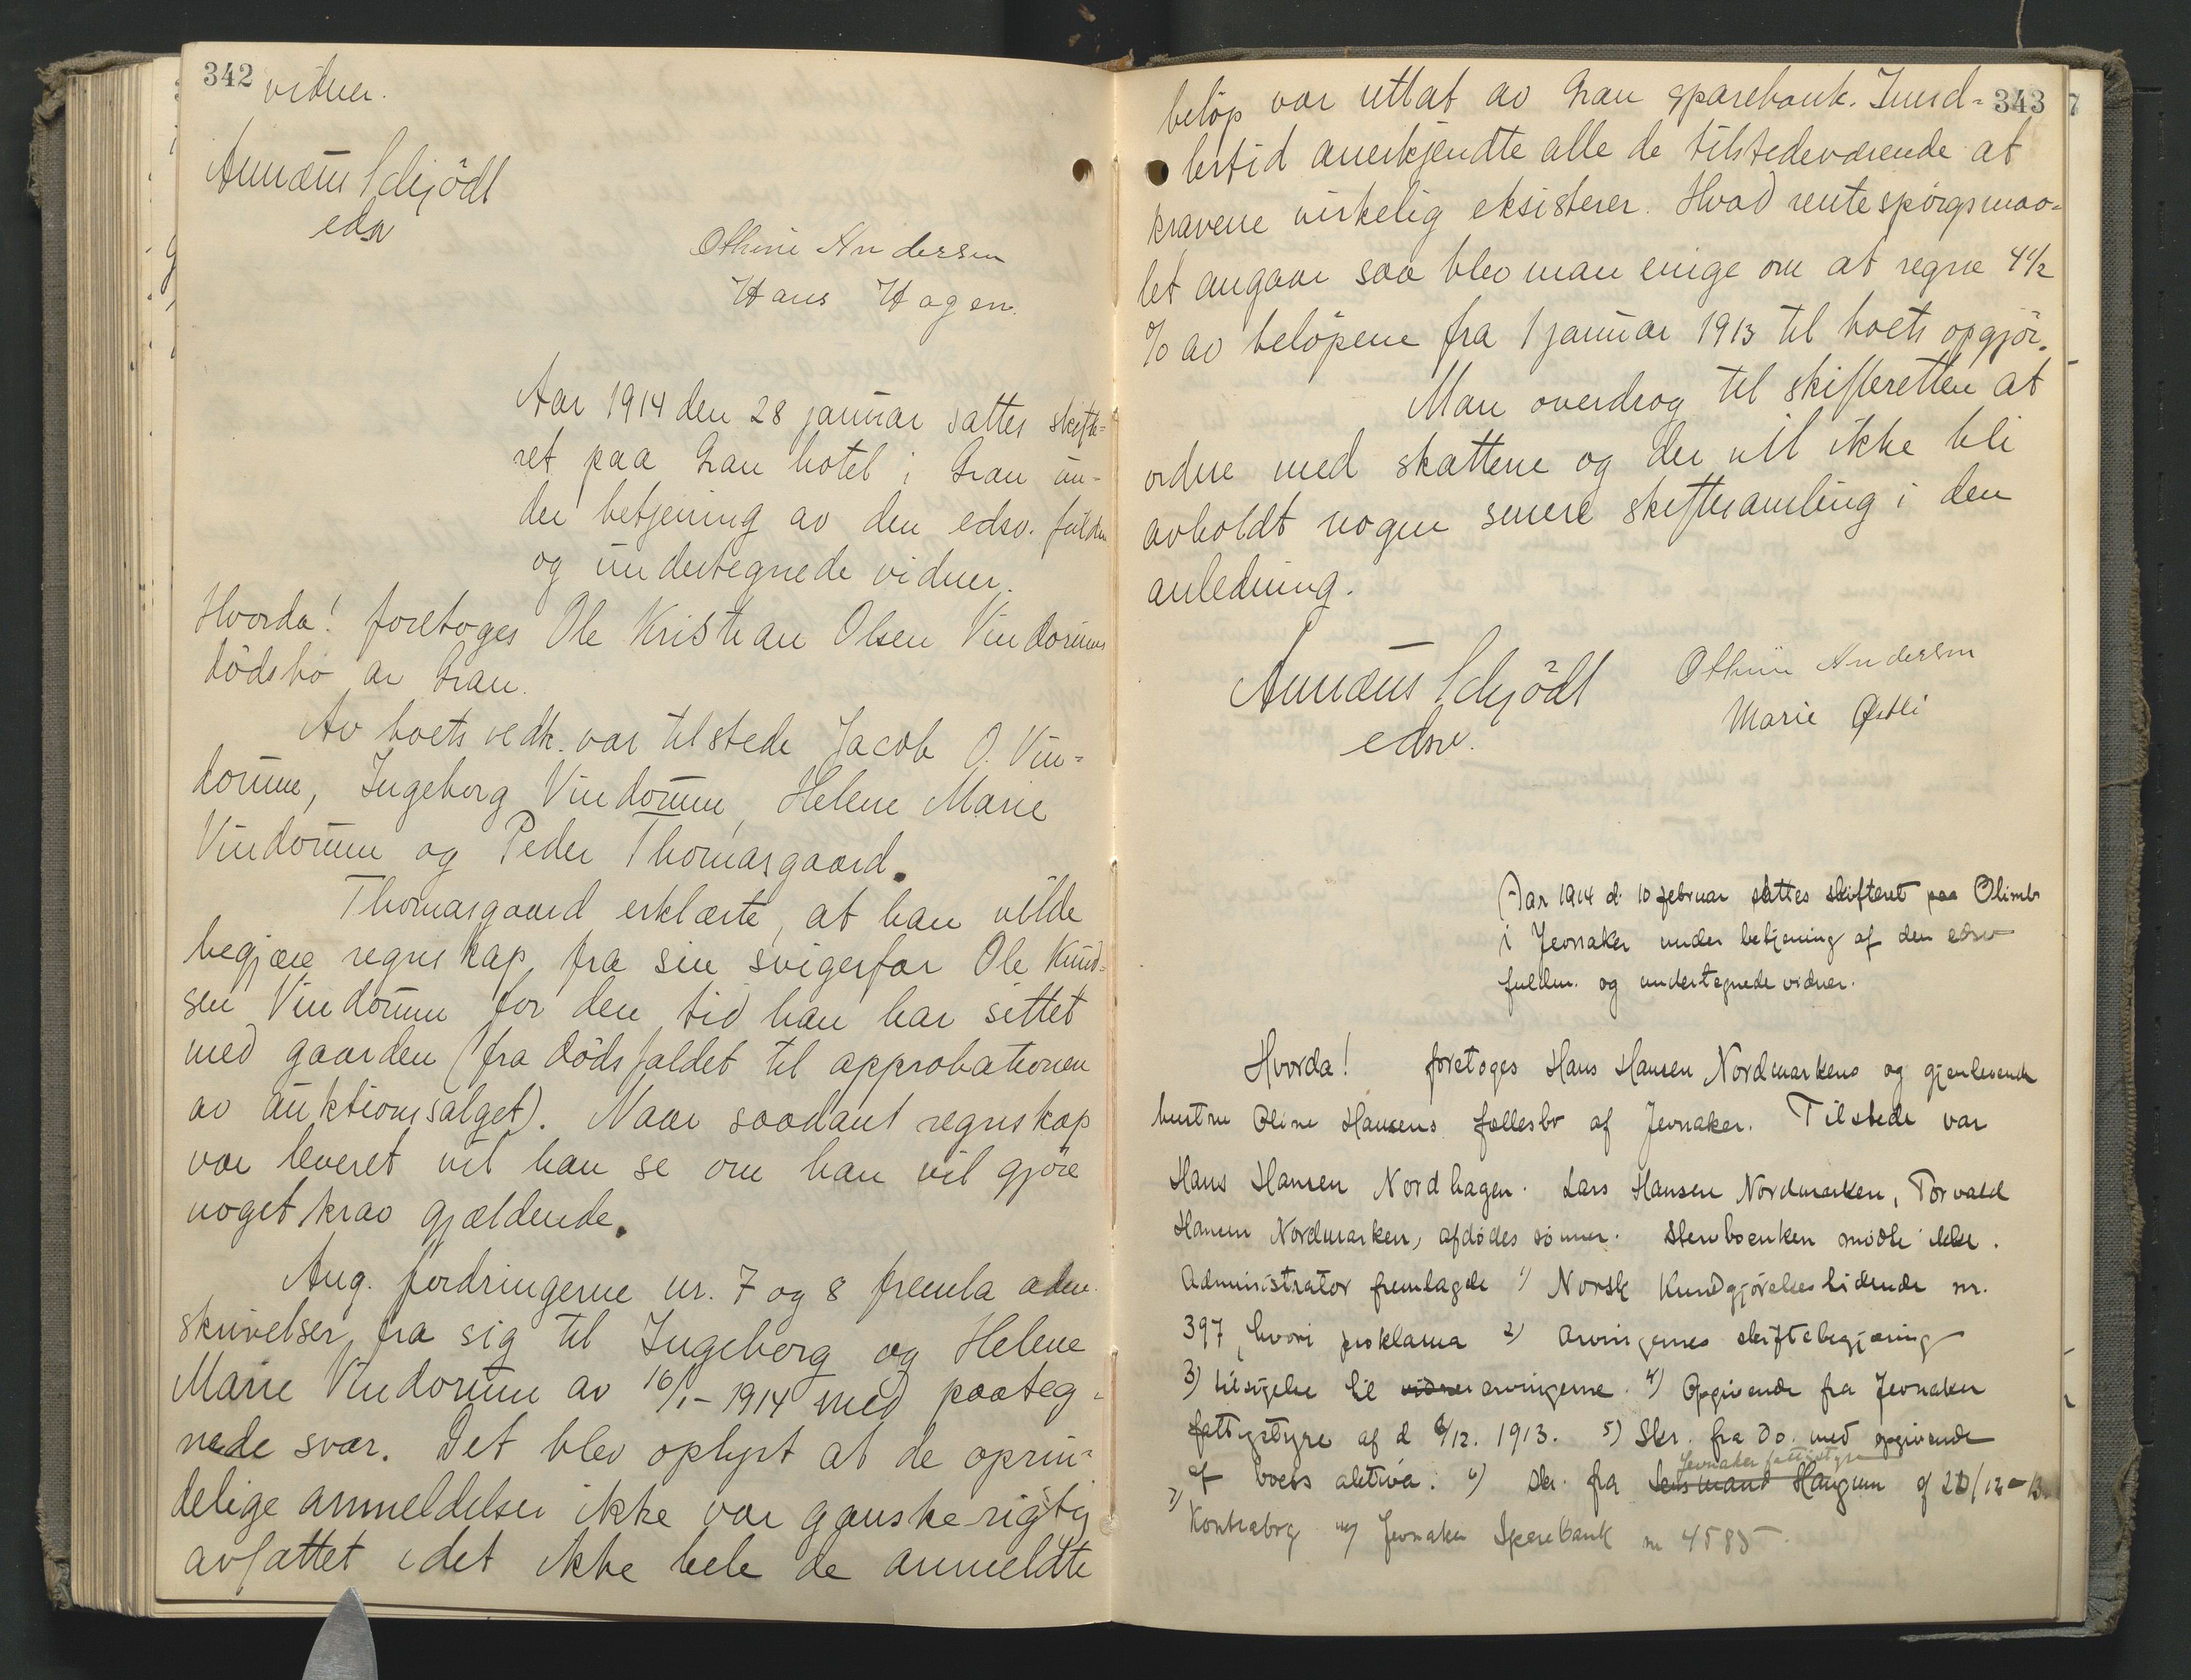 342
vidner.
Annæus Schjödt
edsv
Othine Andersen
Hans Hagen.
Aar 1914 den 28 januar sattes skifte-
ret paa Gran hotel i Gran un-
der betjening av den edsv. fuldm
og undertegnede vidner.
Hvorda! foretoges Ole Kristian Olsen Vindorums
dödsbo av Gran.
Av boets vedk. var tilstede Jacob O. Vin-
dorum, Ingeborg Vindorum, Helene Marie
Vindorum og Peder Thomasgaard.
Thomasgaard erklærte, at han vilde
begjære regnskap fra sin svigerfar Ole Knud-
sen Vindorum for den tid han har sittet
med gaarden (fra dödsfaldet til approbationen
av auktionssalget). Naar saadant regnskap
var leveret vil han se om han vil gjöre
noget krav gjældende.
Ang. fordringerne nr. 7 og 8 fremla adm.
skrivelser fra sig til Ingeborg og Helene
Marie Vindorum av 16/1-1914 med paateg-
nede svar. Det blev oplyst at de oprin-
delige anmeldelser ikke var ganske rigtig
avfattet idet ikke hele de anmeldte
343
belöp var uttat av Gran sparebank. Imid-
lertid anerkjendte alle de tilstedeværende at
kravene virkelig eksisterer. Hvad rentespörgsmaa-
let angaar saa blev man enige om at regne 4½
% av belöpene fra 1 januar 1913 til boets opgjör.
Man overdrog til skifteretten at
ordne med skattene og der vil ikke bli
avholdt nogen senere skiftesamling i den
anledning.
Annæus Schjödt
edsv.
Othine Andersen
Marie Østli
Aar 1914 d. 10 februar sattes skifteret paa Olimb
i Jevnaker under betjening af den edsv
fuldm. og undertegnede vidner.
Hvorda! foretoges Hans Hansen Nordmarkens og gjenlevende
hustru Oline Hansens fællesbo af Jevnaker. Tilstede var
Hans Hansen Nordhagen. Lars Hansen Nordmarken, Torvald
Hansen Nordmarken, afdødes sønner. møtte ikke.
Administrator fremlagde 1) Norsk Kundgjørelsestidende nr.
397, hvori proklama 2) Arvingernes skiftebegjæring
3) tilsigelse til vidner arvingerne. 4) Opgivende fra Jevnaker
fattigstyre af d 6/12. 1913. 5) Skr. fra Do. med opgivende
Jevnaker fattigstyre
af boets aktiva. 6) Skr. fra lensmand Haugum af 20/12-13.
7) Kontrabog af Jevnaker Sparebank nr 4585